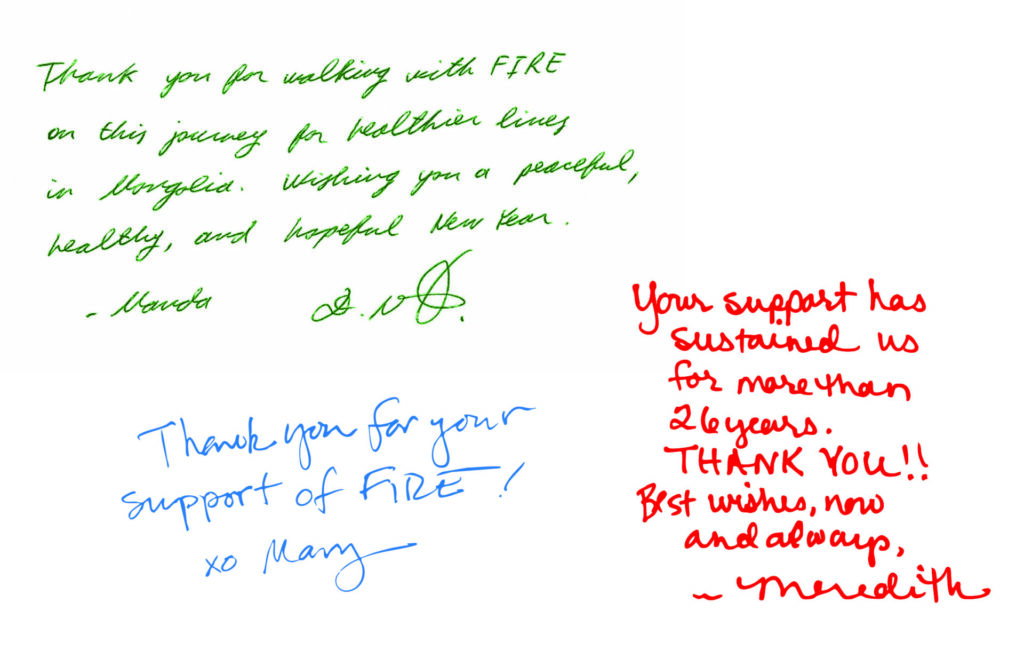 Thank you for walking with FIRE
on this journey for healthier lives
in Mongolia. Wishing you a peaceful,
healthy, and hopeful New Year.
- Manda
Thank you for your
support of FIRE!
xo Mary
Your support has
sustained us
for more than
26 years.
THANK YOU!!
Best wishes, now
and always,
~ Meredith